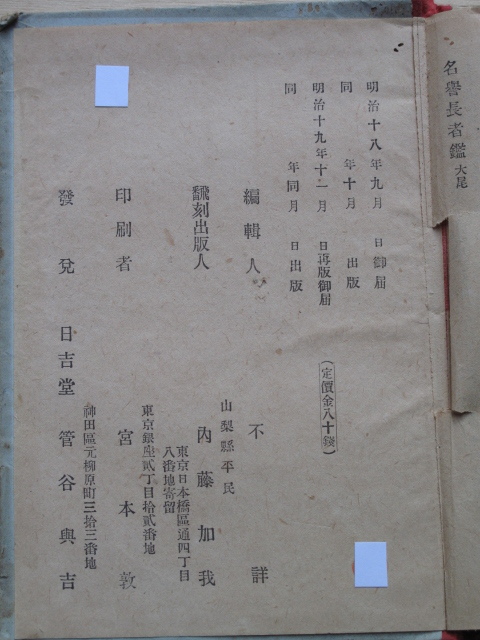 名譽長者鑑 大尾
明治十八年九月 日御届
同 年十月 出版
明治十九年十一月 日再版御届
同 年同月 日出版
（定價金八十錢）
編輯人 不詳
山梨縣平民
飜刻出版人 内藤加我
東京日本橋區通四丁目
八番地寄留
東京銀座貳丁目拾貳番地
印刷者 宮本敦
神田區元柳原町三拾三番地
發兌 日吉堂 管谷與吉